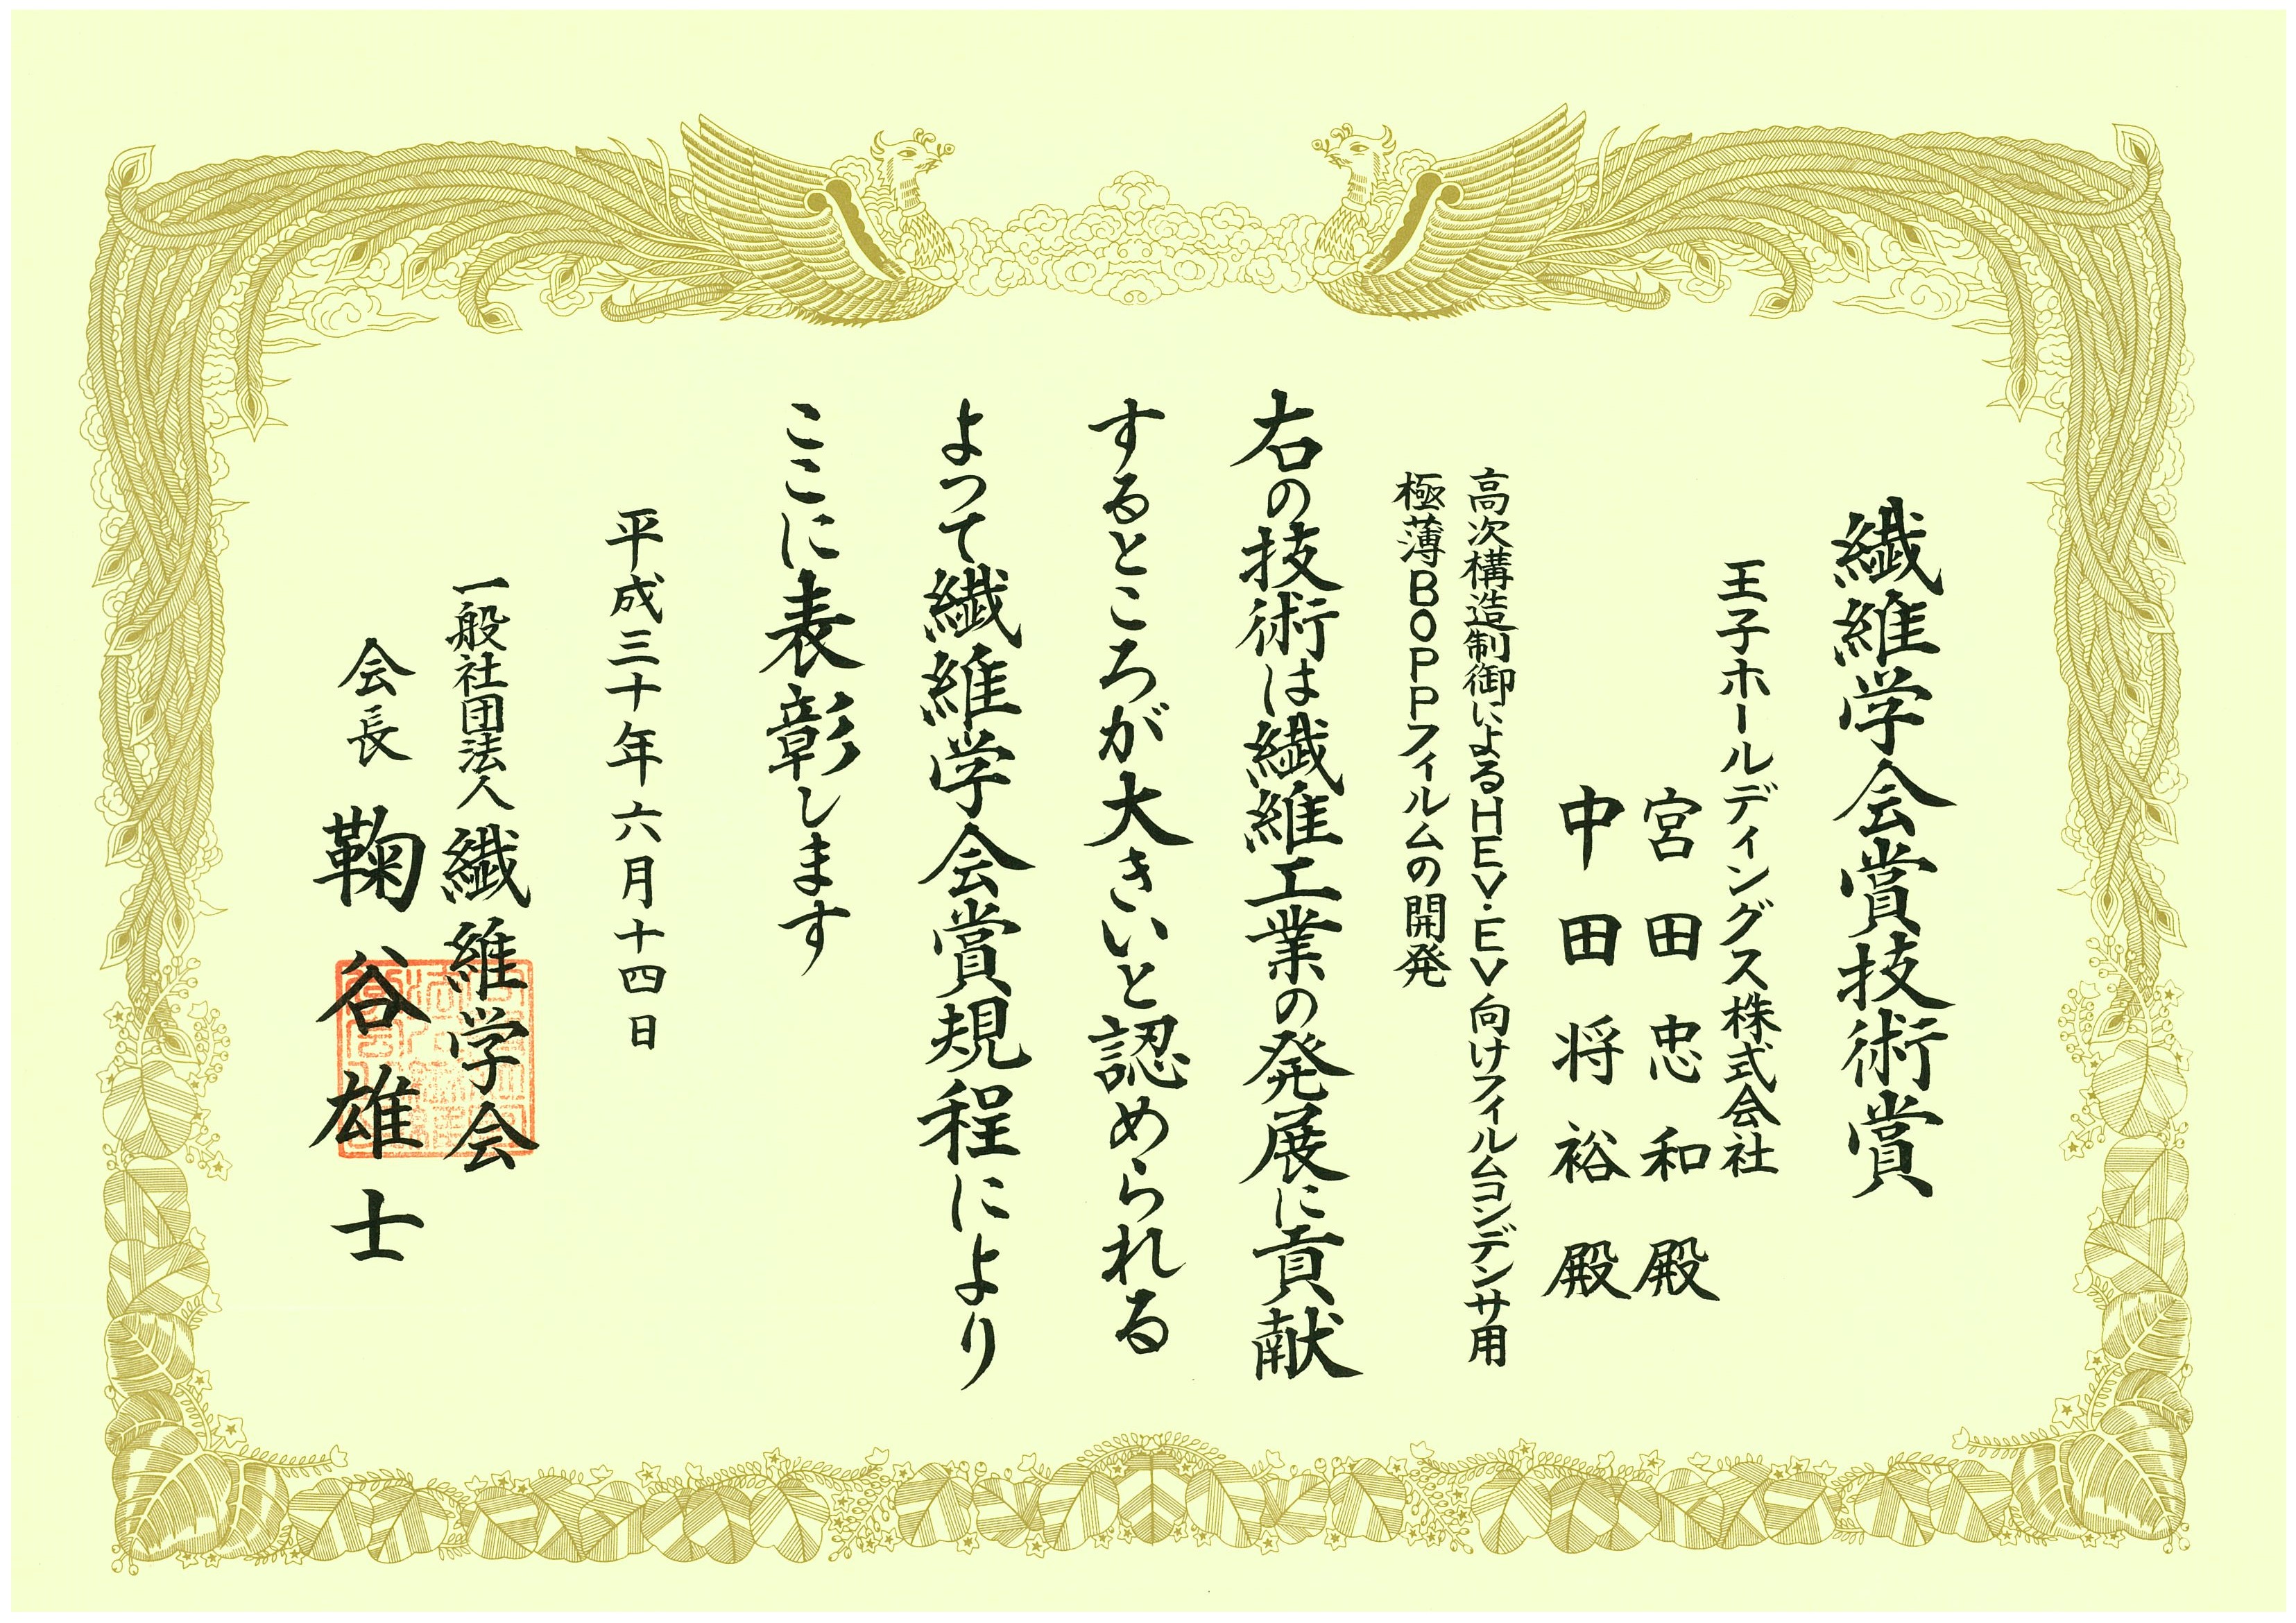 繊維学会賞技術賞
王子ホールディングス株式会社
宮田忠和殿
中田将裕殿
高次構造制御によるHEV・EV向けフィルムコンデンサ用
極薄BOPPフィルムの開発
右の技術は繊維工業の発展に貢献
するところが大きいと認められる
よつて繊維学会賞規程により
ここに表彰します
平成三十年六月十四日
一般社団法人繊維学会
会長 鞠谷雄士